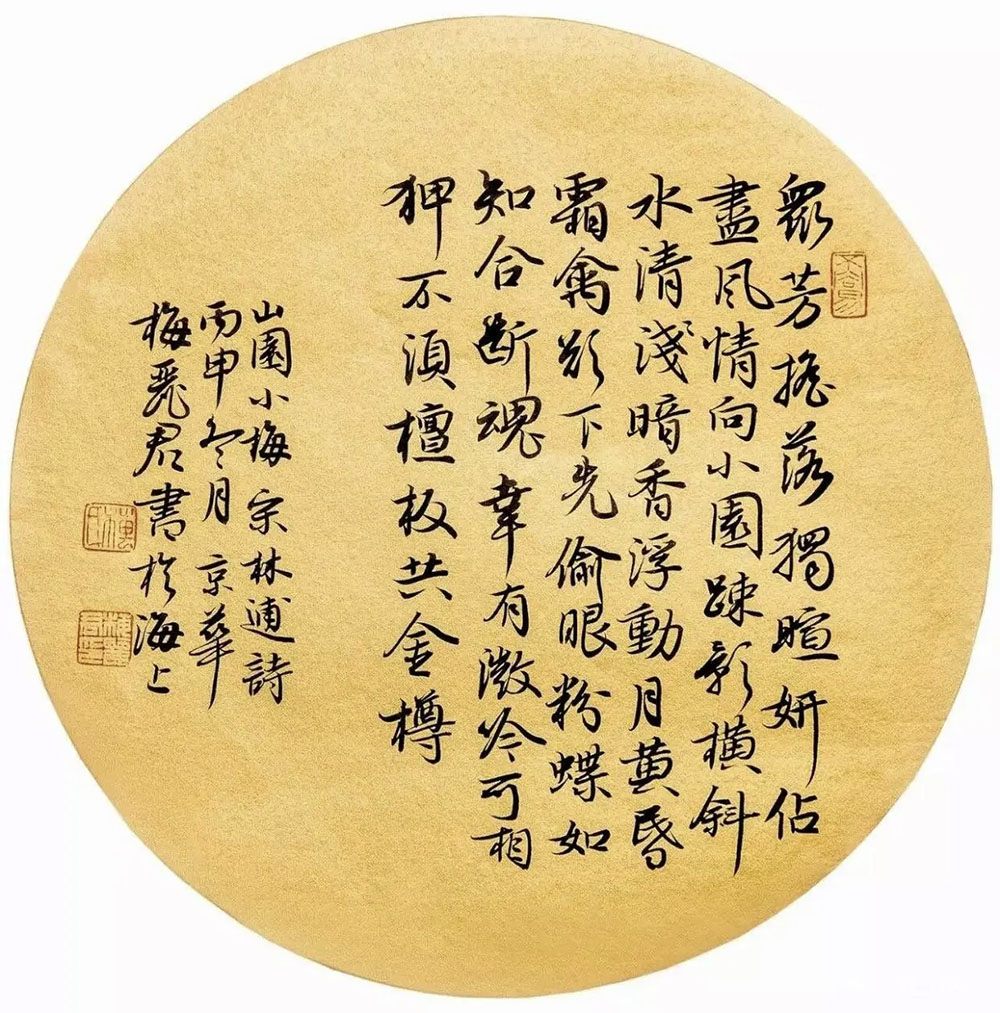 眾芳搖落獨暄妍佔
盡風情向小園疎影橫斜
水清淺暗香浮動月黃昏
霜禽欲下先偷眼粉蝶如
知合斷魂幸有微吟可相
狎不須檀板共金樽
山園小梅宗林逋詩
丙申冬月京華
梅飛君書於海上